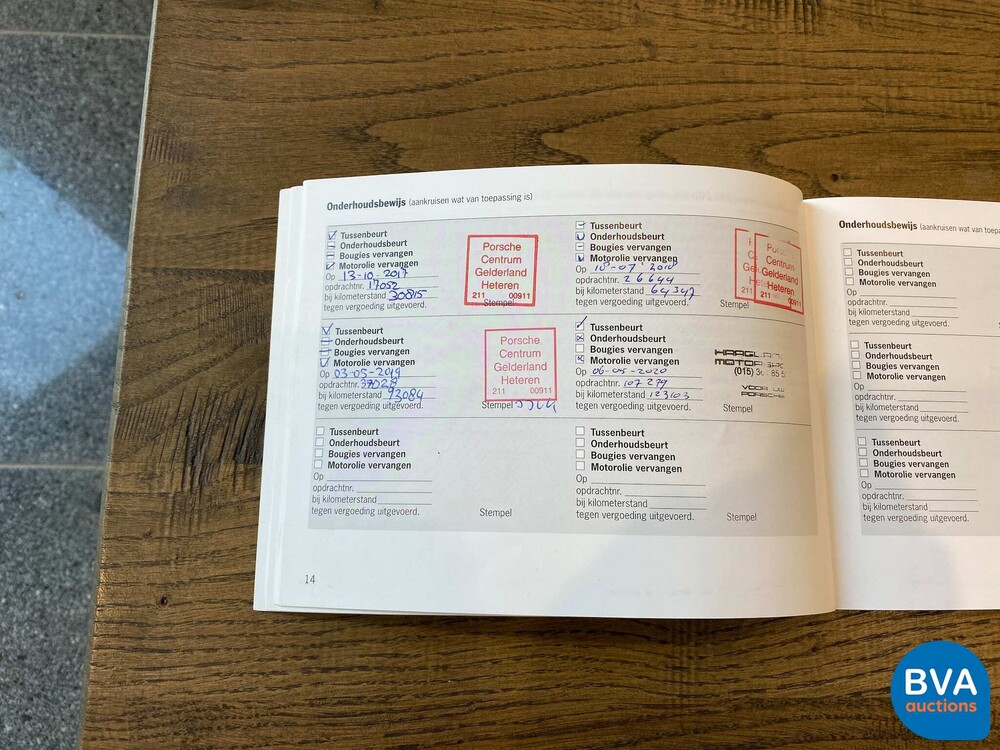 Onderhoudsbewijs (aankruisen wat van toepassing is)
Tussenbeurt
Onderhoudsbeurt
Bougies vervangen
Motorolie vervangen
Op 13-10-2017
opdrachtnr. 17052
bij kilometerstand 30815
tegen vergoeding uitgevoerd.
Porsche
Centrum
Gelderland
Heteren
211 00911
Stempel
Tussenbeurt
Onderhoudsbeurt
Bougies vervangen
Motorolie vervangen
Op 10-07 2018
opdrachtnr. 26644
bij kilometerstand 64347
tegen vergoeding uitgevoerd.
Porsche
Centrum
Gelderland
Heteren
211 00911
Stempel
Tussenbeurt
Onderhoudsbeurt
Bougies vervangen
Motorolie vervangen
Op 03-05-2019
opdrachtnr. 39028
bij kilometerstand 93084
tegen vergoeding uitgevoerd.
Porsche
Centrum
Gelderland
Heteren
211 00911
Stempel
Tussenbeurt
Onderhoudsbeurt
Bougies vervangen
Motorolie vervangen
Op 06-05-2020
opdrachtnr. 107279
bij kilometerstand 123103
tegen vergoeding uitgevoerd.
(015)
VOOR UW
PORSCHE
Stempel
Tussenbeurt
Onderhoudsbeurt
Bougies vervangen
Motorolie vervangen
Op
opdrachtnr.
bij kilometerstand
tegen vergoeding uitgevoerd.
Stempel
Tussenbeurt
Onderhoudsbeurt
Bougies vervangen
Motorolie vervangen
Op
opdrachtnr.
bij kilometerstand
tegen vergoeding uitgevoerd.
Stempel
14
Onderhoudsbewijs (aankruisen wat van toepa
Tussenbeurt
Onderhoudsbeurt
Bougies vervangen
Motorolie vervangen
Op
opdrachtnr.
bij kilometerstand
tegen vergoeding uitgevoerd.
Tussenbeurt
Onderhoudsbeurt
Bougies vervangen
Motorolie vervangen
Op
opdrachtnr.
bij kilometerstand
tegen vergoeding uitgevoerd.
Tussenbeurt
Onderhoudsbeurt
Bougies vervangen
Motorolie vervangen
Op
opdrachtnr.
bij kilometerstand
tegen vergoeding uitgevoerd.
BVA
auctions